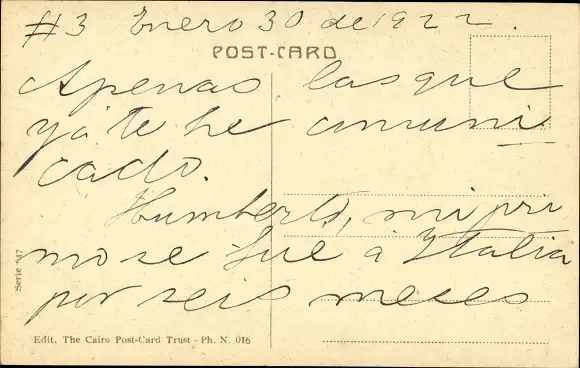 #3 Enero 30 de 1922.
POST-CARD
Apenas las que
ya te he comuni
cado.
Humberto, mi pri
mo se fué á Italia
por seis meses
Serie 547
Edit. The Cairo Post-Card Trust - Ph. N. 016